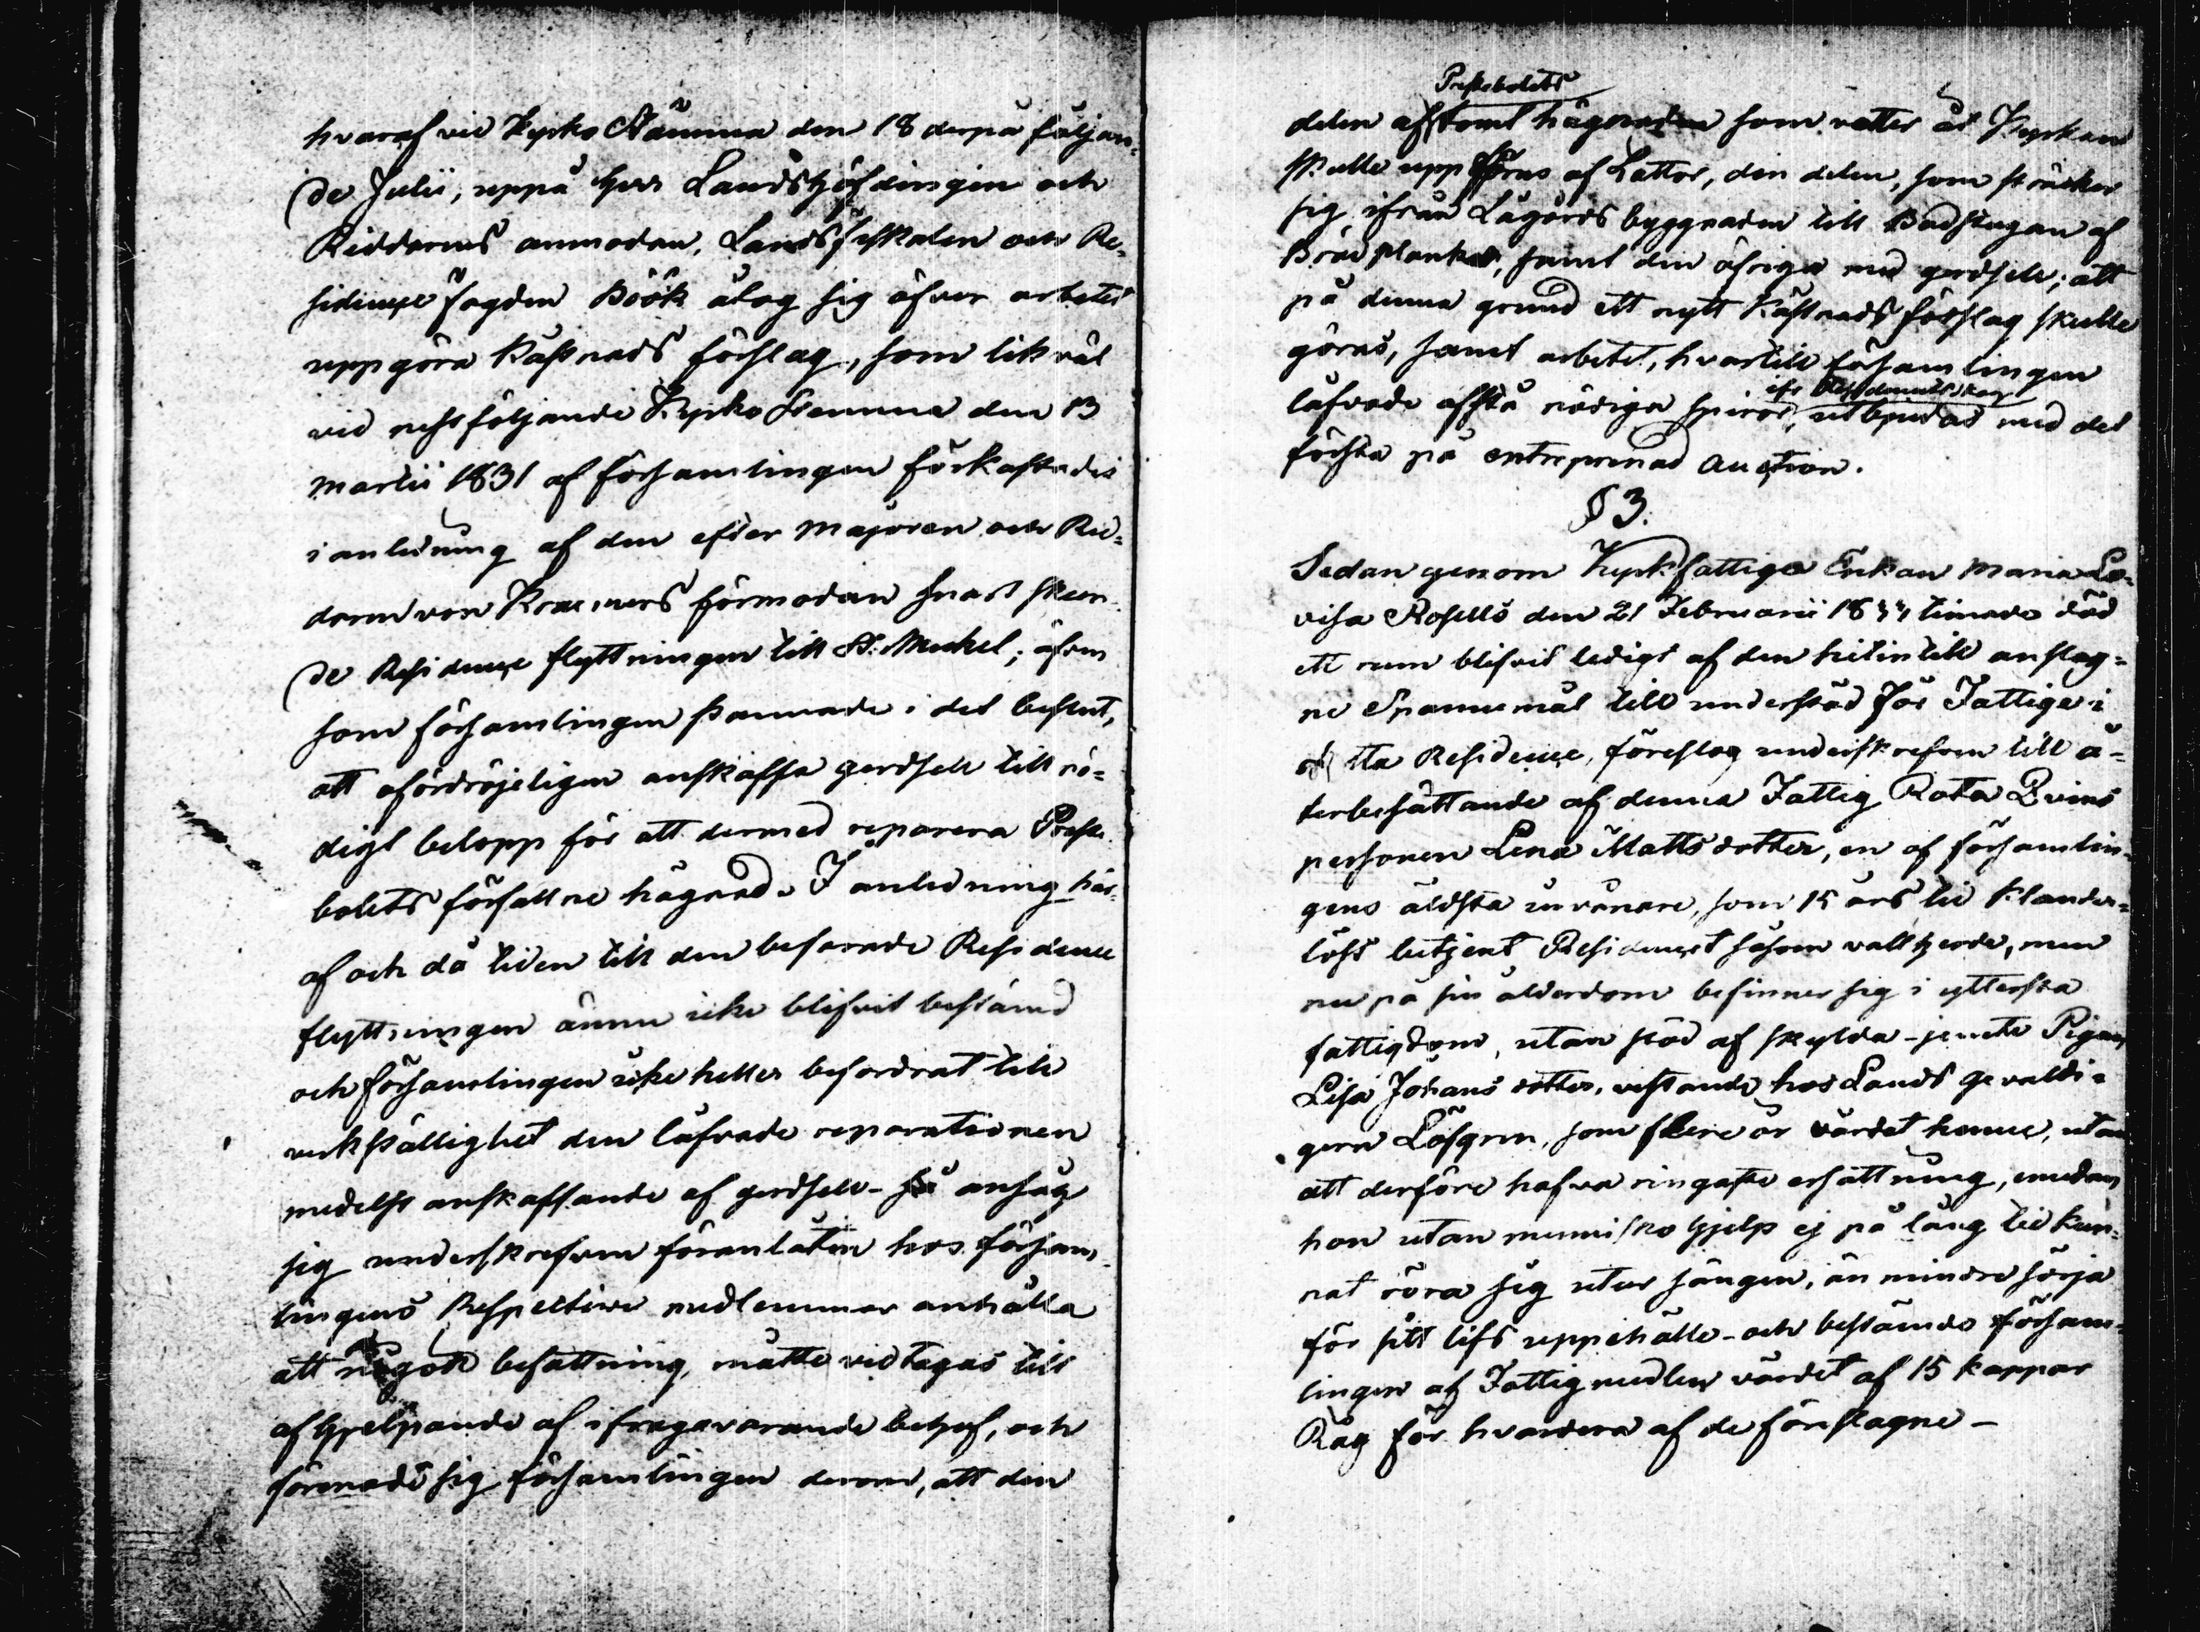 hvaraf vid Kyrko Stämma den 18 derpå följan-
de Julii, uppå Herr Landshöfdingen och
Riddarens anmodan, Landsfiskalen och Re-
sidence fogden Böök åtog sig öfver arbetet
uppgöra kåstnads förslag, som likväl
vid nästföljande Kyrko Stemma den 13
Martii 1831 af församlingen förkastades
i anledning af den efter Majoren och Rid-
daren von Kraemers förmodan snart skeen-
de Residence flyttningen till St. Mickel; äfven
som församlingen stannade i det beslut,
att ofördröjeligen anskaffa gerdsele till nö-
digt belopp för att dermed reparera Preste
bolets förfallne hägnad. I anledning här-
af och då tiden till den befarade Residence
flyttningen ännu icke blifvit bestämd
och församlingen icke heller befordrat till
verkställighet den låfvade reparationen
medelst anskaffande af gerdsele - så ansåg
sig underskrefven föranlåten hos försam-
lingens Respective medlemmar anhålla
att någon befattning måtte vidtagas till
afhjelpande af ifrågavarande behof, och
förenade sig församlingen derom, att den
Prestebolets
delen af tomt hägnaden som vetter åt Kyrkan
skulle uppföras af Lattor, den delen, som sträcker
sig ifrån Lågårds byggnaden till Badstugan af
Bräd plank, samt den öfriga med gerdsele; att
på denna grund ett nytt kåstnads förslag skulle
göras, samt arbetet, hvartill församlingen
låfvade afstå nödiga spiror, utbjudas med det
första på entreprenad auction.
§ 3.
Sedan genom Kyrkfattiga Enkan Maria Lo-
visa Rosells den 21 Februarii 1844 timade död
ett rum blifvit ledigt af den hitintill anslag-
ne Spannemål till understöd för Fattige i
detta Residence, föreslog underskrefven till å-
terbesättande af denna Fattig Rota Qvins
personen Lena Mattsdotter, en af församlin-
gens äldsta invånare, som 15 års tid klander-
löst betjent Residencet såsom vallherde, men
nu på sin ålderdom befinner sig i yttersta
fattigdom, utan stöd af skylda - jemte Pigan
Lisa Johansdotter, vistande hos Lands gevaldi-
gern Löfgren, som flere år vårdat henne, utan
att derföre hafva ringaste ersättning, emedan
hon utan mennisko hjelp ej på lång tid kun-
nat röra sig utur sängen, än mindre sörja
för sitt lifs uppehälle - och bestämde försam-
lingen af Fattig medlen värdet af 15 kappar
Råg för hvardera af de föreslagne -